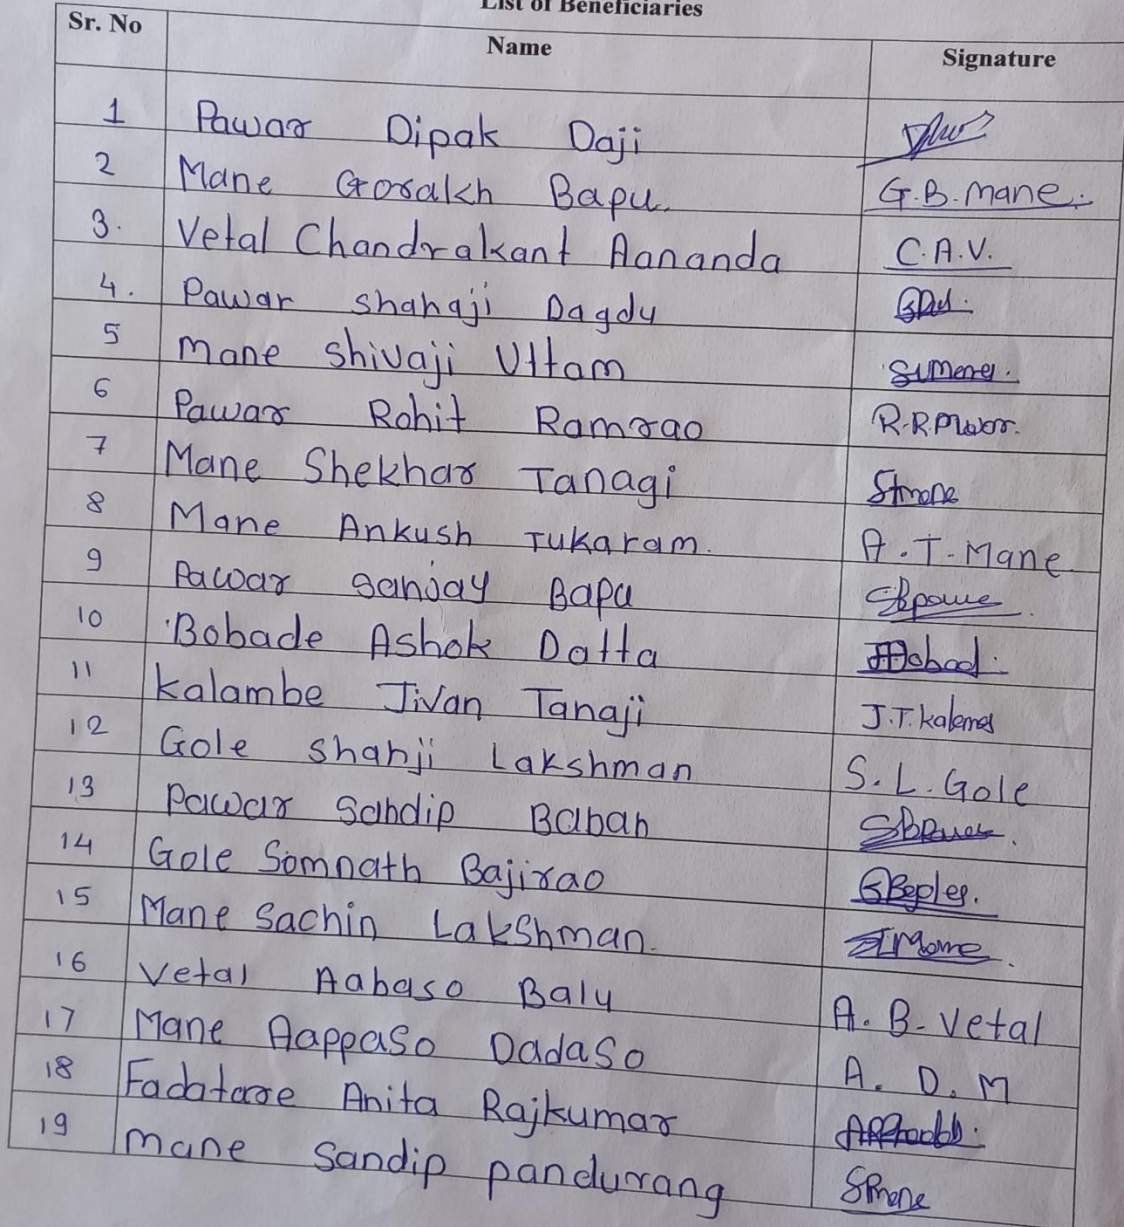 List of Beneficiaries
Sr. No Name Signature
1 Pawar Dipak Daji
2 Mane Gorakh Bapu. G.B.Mane.
3. Vetal Chandrakant Aananda C.A.V.
4. Pawar shahaji Dagdu
5 Mane Shivaji Uttam
6 Pawar Rohit Ramrao
7 Mane Shekhar Tanagi
8 Mane Ankush Tukaram. A.T-Mane
9 Pawar Sanjay Bapu
10 Bobade Ashok Datta
11 Kalambe Jivan Tanaji
12 Gole shahji Lakshman S.L.Gole
13 Pawar Sandip Baban
14 Gole Somnath Bajirao
15 Mane Sachin Lakshman.
16 Vetal Aabaso Balu A.B-Vetal
17 Mane Aappaso Dadaso A.D.M
18 Fadatare Anita Rajkumar
19 Mane Sandip pandurang